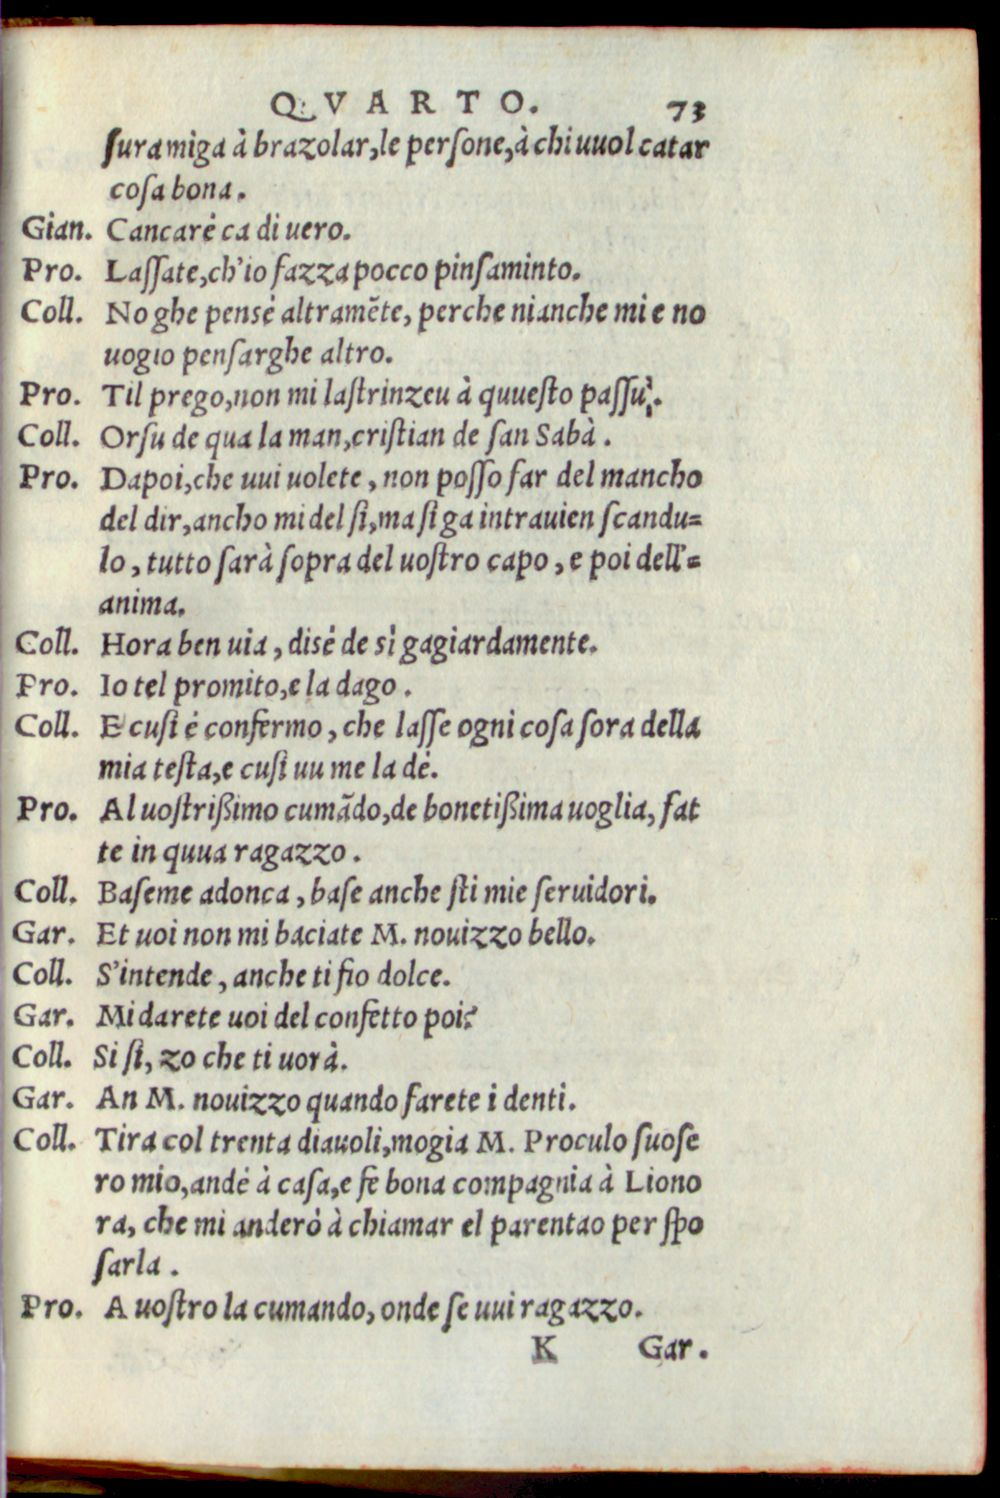 QVARTO. 73
ſura miga à brazolar, le perſone, à chi uuol catar
coſa bona.
Gian. Cancarè ca di uero.
Pro. Laſſate, ch'io fazza pocco pinſaminto.
Coll. No ghe pensè altramẽte, perche nianche mi e no
uogio penſarghe altro.
Pro. Til prego, non mi laſtrinzeu à quueſto paſſù.
Coll. Orſu de qua la man, criſtian de ſan Sabà.
Pro. Dapoi, che uui uolete, non poſſo far del mancho
del dir, ancho mi del ſi, ma ſi ga intrauien ſcandu=
lo, tutto ſarà ſopra del uoſtro capo, e poi dell'=
anima.
Coll. Hora ben uia, disè de sì gagiardamente.
Pro. Io tel promito, e la dago.
Coll. E cuſi è confermo, che laſſe ogni coſa ſora della
mia teſta, e cuſi uu me la dè.
Pro. Al uoſtriſſimo cumãdo, de bonetiſſima uoglia, fat
te in quua ragazzo.
Coll. Baſeme adonca, baſe anche ſti mie ſeruidori.
Gar. Et uoi non mi baciate M. nouizzo bello.
Coll. S'intende, anche ti fio dolce.
Gar. Mi darete uoi del confetto poi?
Coll. Si ſi, zo che ti uorà.
Gar. An M. nouizzo quando farete i denti.
Coll. Tira col trenta diauoli, mogia M. Proculo ſuoſe
ro mio, andè à caſa, e fè bona compagnia à Liono
ra, che mi anderò à chiamar el parentao per ſpo
ſarla.
Pro. A uoſtro la cumando, onde ſe uui ragazzo.
K Gar.